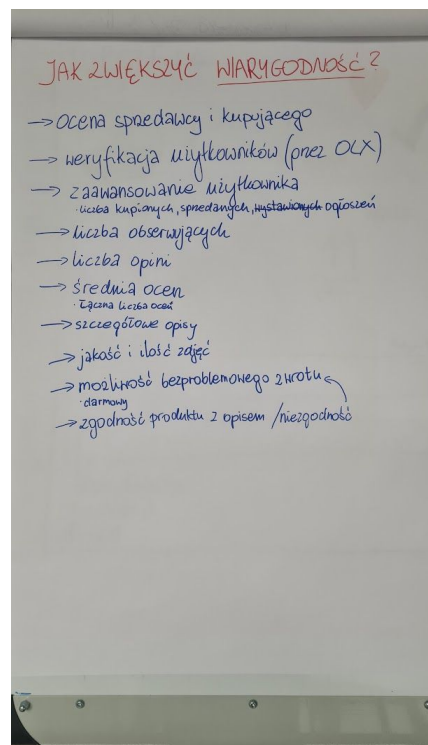 JAK ZWIĘKSZYĆ WIARYGODNOŚĆ?
→ ocena sprzedawcy i kupującego
→ weryfikacja użytkowników (przez OLX)
→ zaawansowanie użytkownika
· liczba kupionych, sprzedanych, wystawionych ogłoszeń
→ liczba obserwujących
→ liczba opini
→ średnia ocen
· łączna liczba ocen
→ szczegółowe opisy
→ jakość i ilość zdjęć
→ możliwość bezproblemowego zwrotu
· darmowy
→ zgodność produktu z opisem /niezgodność